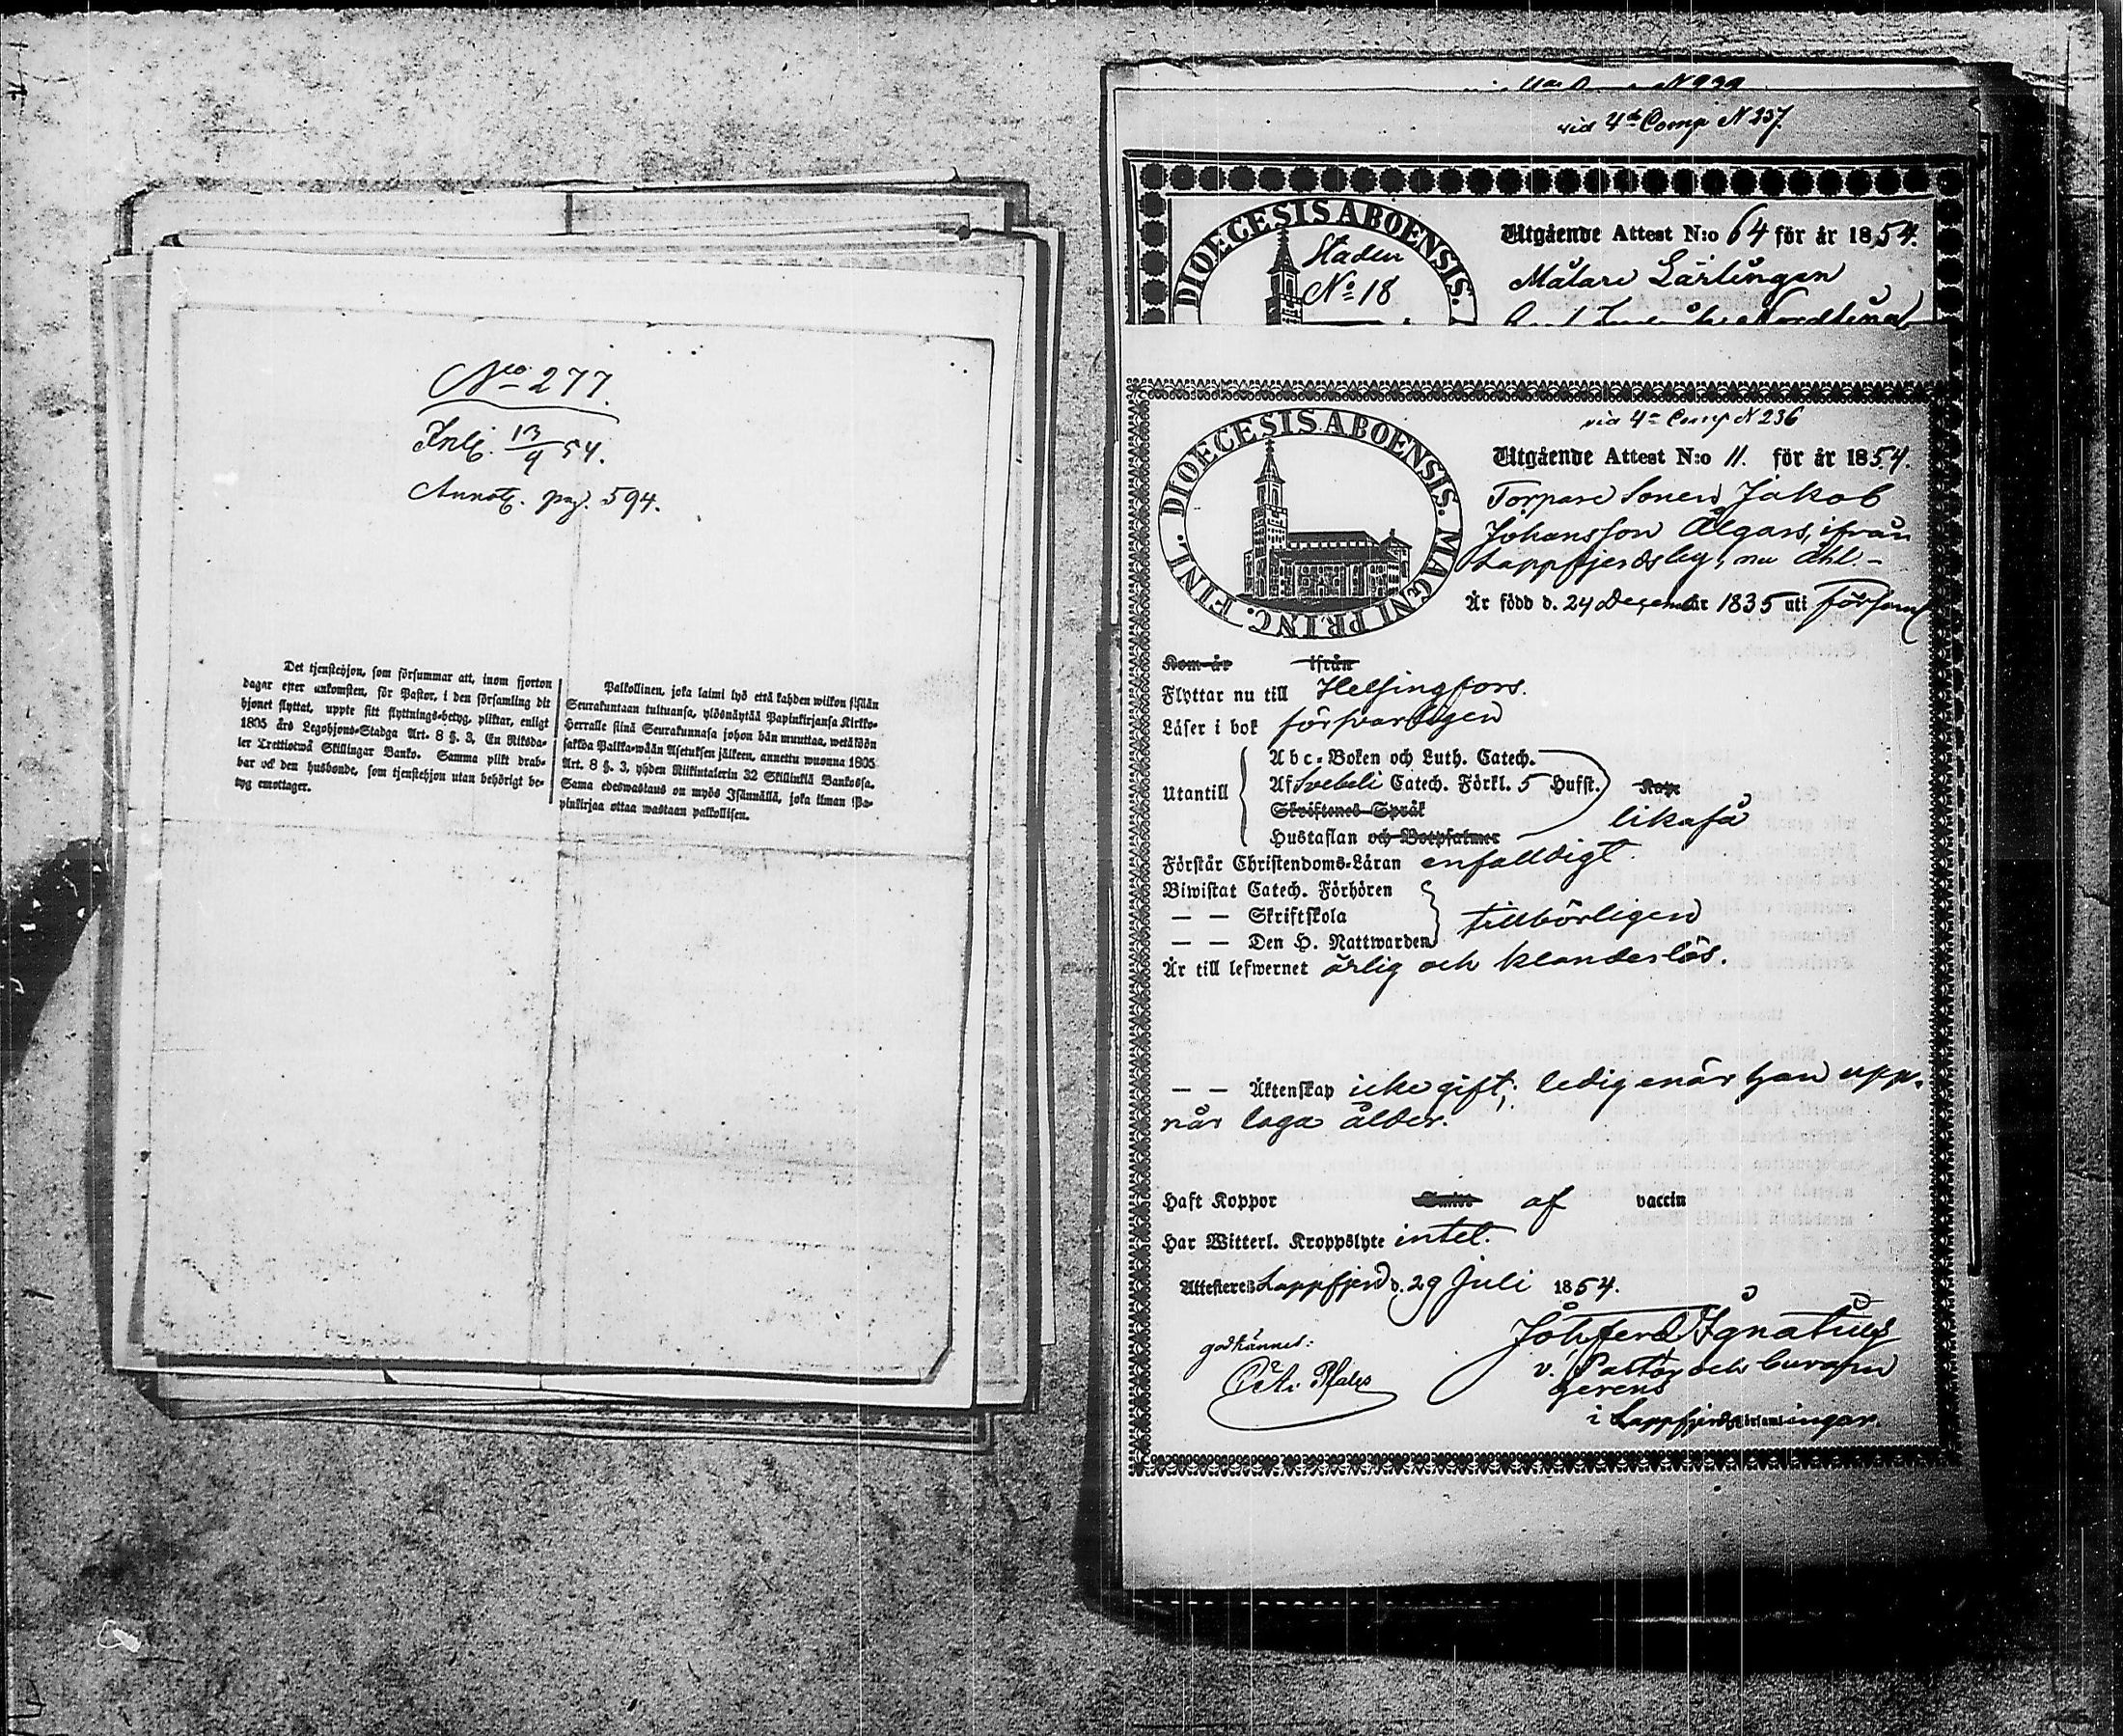 No 277.
Inl. 13/9 54.
Annot. pag. 594.
Det tjenstehjon, som försummar att, inom fjorton
dagar efter ankomsten, för Pastor, i den församling dit
hjonet flyttat, uppte sitt flyttnings-betyg, pliktar, enligt
1805 års Legohjons-Stadga Art. 8 §. 3, En Riksda-
ler Trettiotwå Skillingar Banko. Samma plikt drab-
bar ock den husbonde, som tjenstehjon utan behörigt be-
tyg emottager.
Palkollinen, joka laimi lyö että kahden wiikon sisällä
Seurakuntaan tultuansa, ylösnäytää Papinkirjansa Kirkko-
Herralle siinä Seurakunnasa johon hän muuttaa, wetäköön
sakkoa Palkka-wään Asetuksen jälkeen, annettu wuonna 1805
Art. 8 §. 3, yhden Riikintalerin 32 Skillinkiä Bankossa.
Sama edeswastaus on myös Isännällä, joka ilman Pa-
pinkirjaa ottaa wastaan palkollisen.
vid 4de Comp N 237.
DIOECESIS ABOENSIS.
Staden
No 18
Utgående Attest N:o 64 för år 1854.
Målare Lärlingen
Nordlund
vid 4e Comp N 236
DIOECESIS ABOENSIS. MAGNI PRINC. FINL.
Utgående Attest N:o 11. för år 1854.
Torpare Sonen Jakob
Johansson Ålgars, ifrån
Lappfjerdsby, nu Ahl.-
Är född d. 24 December 1835 uti Församl
Kom år ifrån
Flyttar nu till Helsingfors.
Läser i bok försvarligen
Abc-Boken och Luth. Catech.
Utantill Af Svebeli Catech. Förkl. 5 Hufst. Kap.
Skriftenes Språk likaså
Hustaflan och Botpsalmer
Förstår Christendoms-Läran enfaldigt.
Biwistat Catech. Förhören
— — Skriftskola tillbörligen
— — Den H. Nattwarden
Är till lefwernet ärlig och klanderlös.
— — Äktenskap icke gift; ledig enär han upp-
når laga ålder.
Haft Koppor af vaccin
Har Witterl. Kroppslyte intet.
Attesteres Lappfjerd d. 29 Juli 1854.
godkännes:
Joh. Ferd. Ignatius
v. Pastor och Curam
gerens
i Lappfjerds församlingar.